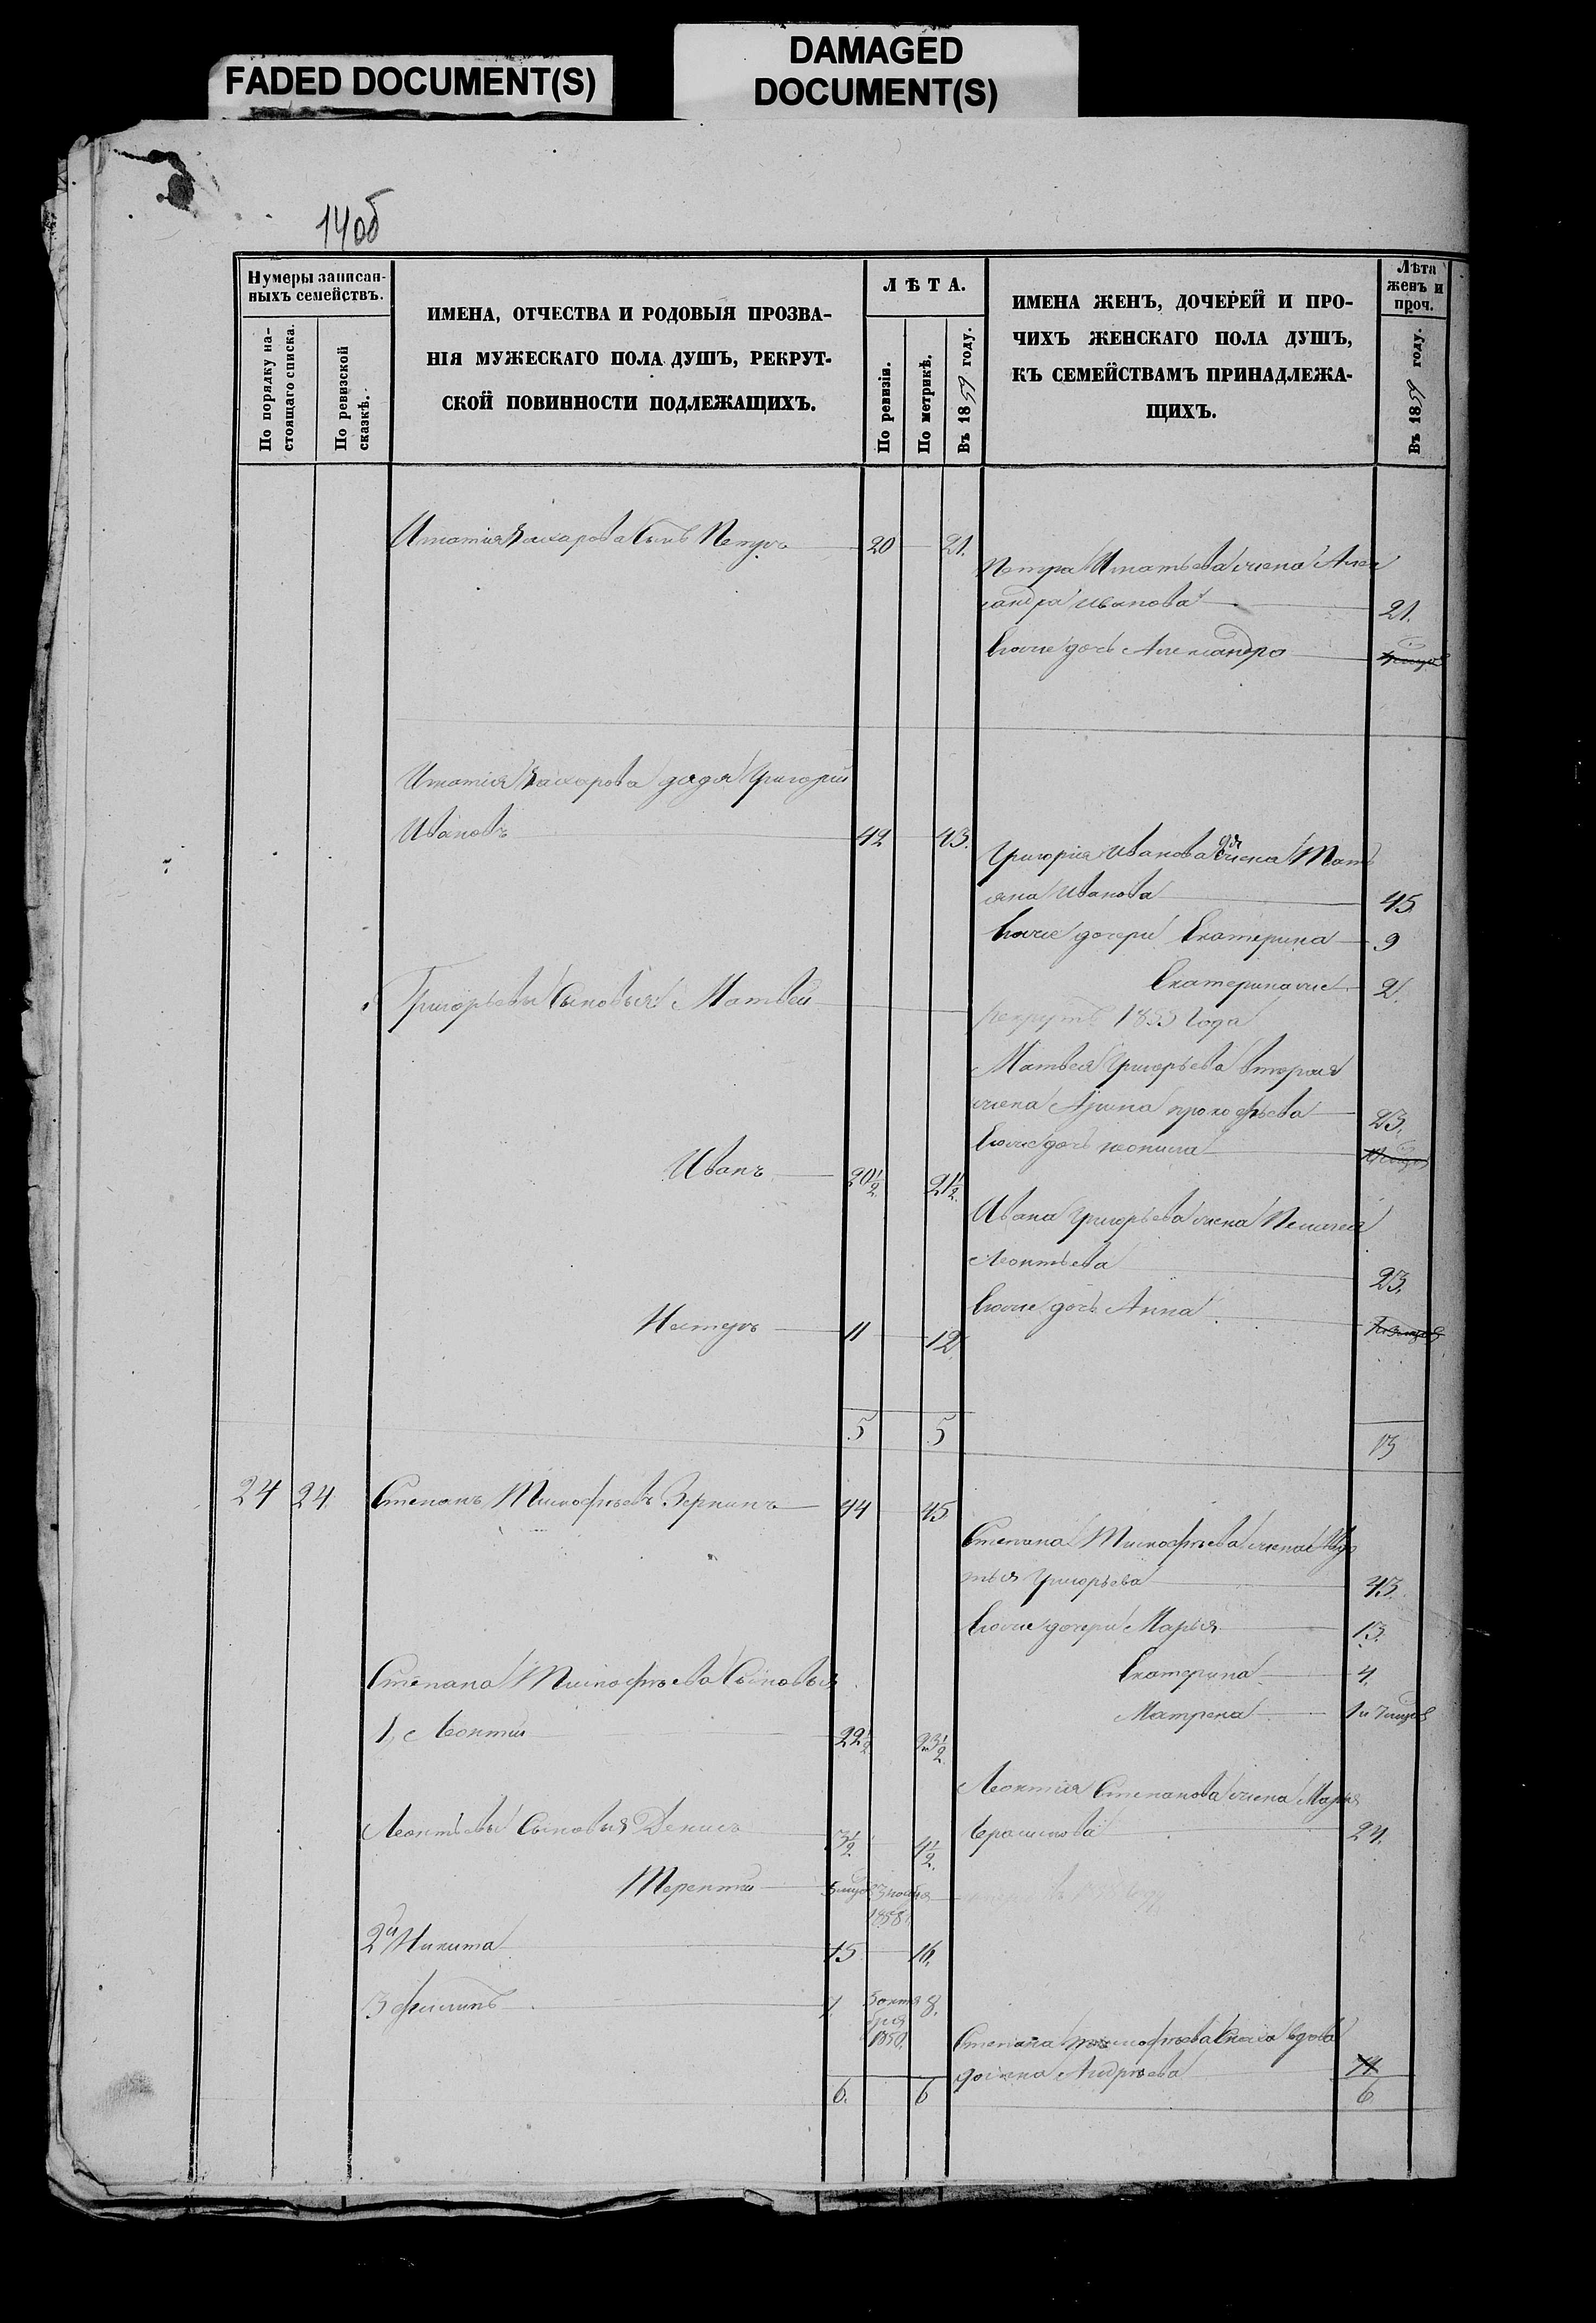 FADED DOCUMENT(S)
DAMAGED
DOCUMENT(S)
14об
Нумеры записан-
ныхъ семействъ.
По порядку на-
стоящаго списка.
По ревизской
сказкѣ.
ИМЕНА, ОТЧЕСТВА И РОДОВЫЯ ПРОЗВА-
НІЯ МУЖЕСКАГО ПОЛА ДУШЪ, РЕКРУТ-
СКОЙ ПОВИННОСТИ ПОДЛЕЖАЩИХЪ.
ЛѢТА.
По ревизіи.
По метрикѣ.
Въ 1859 году.
ИМЕНА ЖЕНЪ, ДОЧЕРЕЙ И ПРО-
ЧИХЪ ЖЕНСКАГО ПОЛА ДУШЪ,
КЪ СЕМЕЙСТВАМЪ ПРИНАДЛЕЖА-
ЩИХЪ.
Лѣта
женъ и
проч.
Въ 1859 году.
Игнатія Захарова сынъ Петръ 20 21.
Петра Игнатьева жена Алек
сандра Иванова 21.
Ихъ дочь Александра
Игнатія Захарова дядя Григорій
Ивановъ 42 43.
Григорія Иванова 2я жена Тать
яна Иванова 45
дочери Екатерина 9
Екатерина же 2.
Григорьевы сыновья Матвей
рекрутъ 1855 года
Матвея Григорьева вторая
жена Арина Прокофьева 23.
дочь
Иванъ 20½ 21½
Ивана Григорьева жена Пелагея
Леонтьева 23.
дочь Анна
Нестеръ 11 12
5 5 13
24 24 Степанъ Тимофѣевъ Зеркинъ 44 45
Степана Тимофѣева жена
Григорьева 43.
дочери Марья 13.
Екатерина 4.
Матрена 1 и 7 мѣся
Степана Тимофѣева сыновья
1, Леонтій 22½ 23½
Леонтія Степанова жена Марья
24.
Леонтьевы сыновья Денисъ 3½ 4½
Терентій 5 мѣся 3 ноября
1858
2й Никита 15 16.
3 Филипъ 7. 5 октя 8.
бря
1850.
Степана Тимофѣева сноха вдова
Андрѣева
6. 6 6